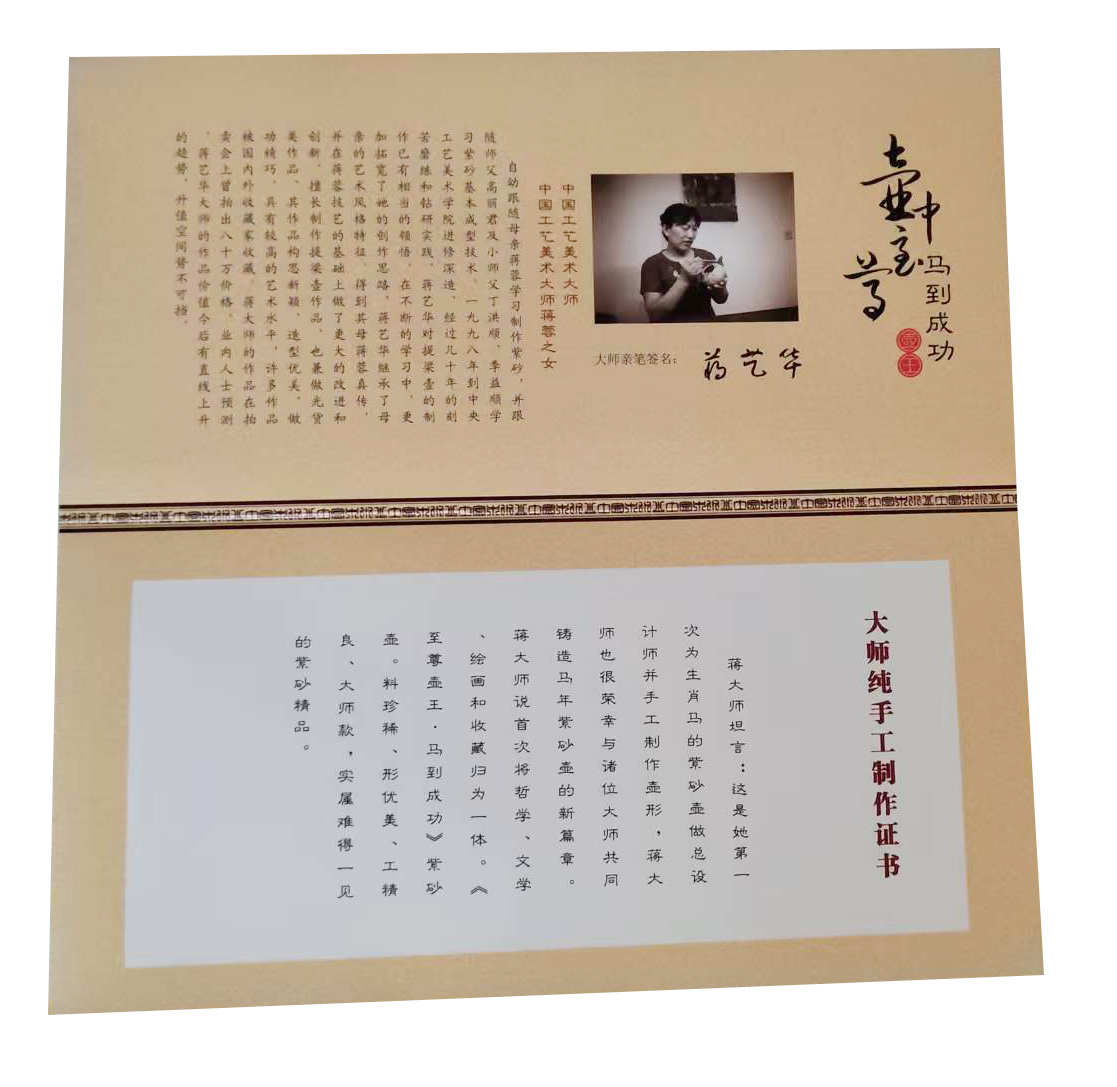 壶中至尊
马到成功
壶王
大师亲笔签名：
蒋艺华
中国工艺美术大师
中国工艺美术大师蒋蓉之女
自幼跟随母亲蒋蓉学习制作紫砂，并跟
随师父高丽君及小师父丁洪顺、李益顺学
习紫砂基本成型技术，一九九八年到中央
工艺美术学院进修深造，经过几十年的刻
苦磨练和钻研实践，蒋艺华对提梁壶的制
作已有相当的领悟，在不断的学习中，更
加拓宽了她的创作思路，蒋艺华继承了母
亲的艺术风格特征，得到其母蒋蓉真传，
并在蒋蓉技艺的基础上做了更大的改进和
创新，擅长制作提梁壶作品，也兼做光货
类作品，其作品构思新颖，造型优美，做
功精巧，具有较高的艺术水平，许多作品
被国内外收藏家收藏，蒋大师的作品在拍
卖会上曾拍出八十万价格，业内人士预测
，蒋艺华大师的作品价值今后有直线上升
的趋势，升值空间势不可挡。
大师纯手工制作证书
蒋大师坦言：这是她第一
次为生肖马的紫砂壶做总设
计师并手工制作壶形，蒋大
师也很荣幸与诸位大师共同
铸造马年紫砂壶的新篇章。
蒋大师说首次将哲学、文学
、绘画和收藏归为一体。《
至尊壶王·马到成功》紫砂
壶。料珍稀、形优美、工精
良、大师款，实属难得一见
的紫砂精品。